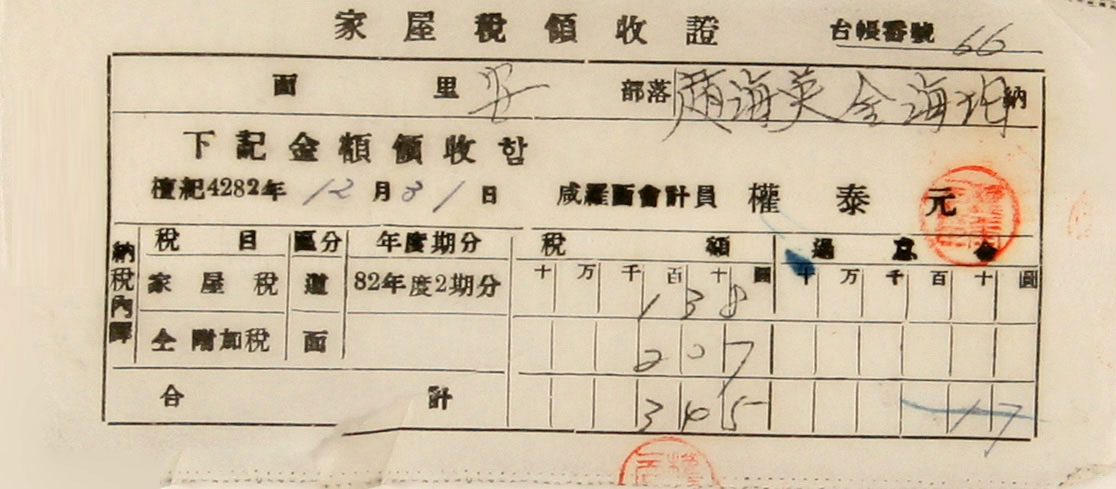 家屋稅領收證 台帳番號 66
面 里 部落 趙海英 納
下記金額領收함
檀紀4282年 12月31日 咸羅面會計員 權泰元
納稅內譯 稅目 區分 年度期分 稅額 過怠金
十万千百十圓 十万千百十圓
家屋稅 道 82年度2期分 138
仝附加稅 面 207
合計 345 17